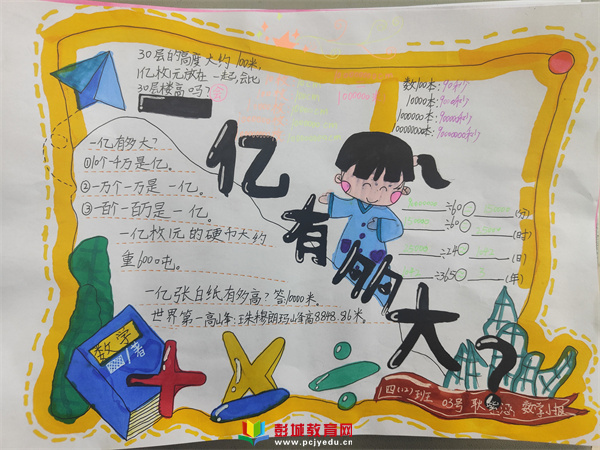 30层的高度大约100米,
1亿枚1元放在一起会比
30层楼高吗?会
数100本:90秒
10000本:9000秒
100000本:90000秒
一亿有多大?
①10个千万是亿。
②一万个一万是一亿。
③一百个一百万是一亿。
一亿枚1元的硬币大约
重600吨。
一亿张白纸有多高?答10000米。
世界第一高山峰:珠穆朗玛山峰高8848.86米。
亿有多大?
÷60
(分)
÷60
(时)
÷24
(日)
÷365
(年)
数学
著
四(12)班 03号
数学小报
彭城教育网
www.pcjyedu.cn